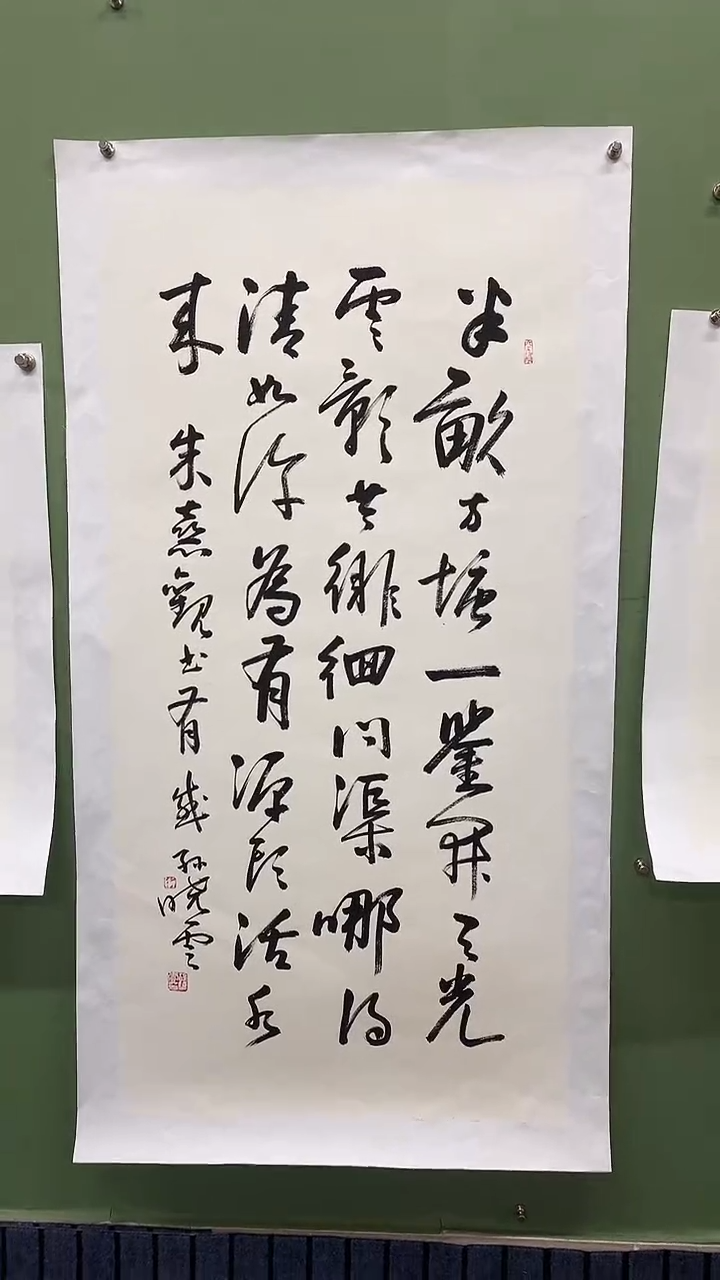 半畝方塘一鑒開天光
雲影共徘徊問渠哪得
清如許為有源頭活水
來 朱熹觀書有感 孫曉雲